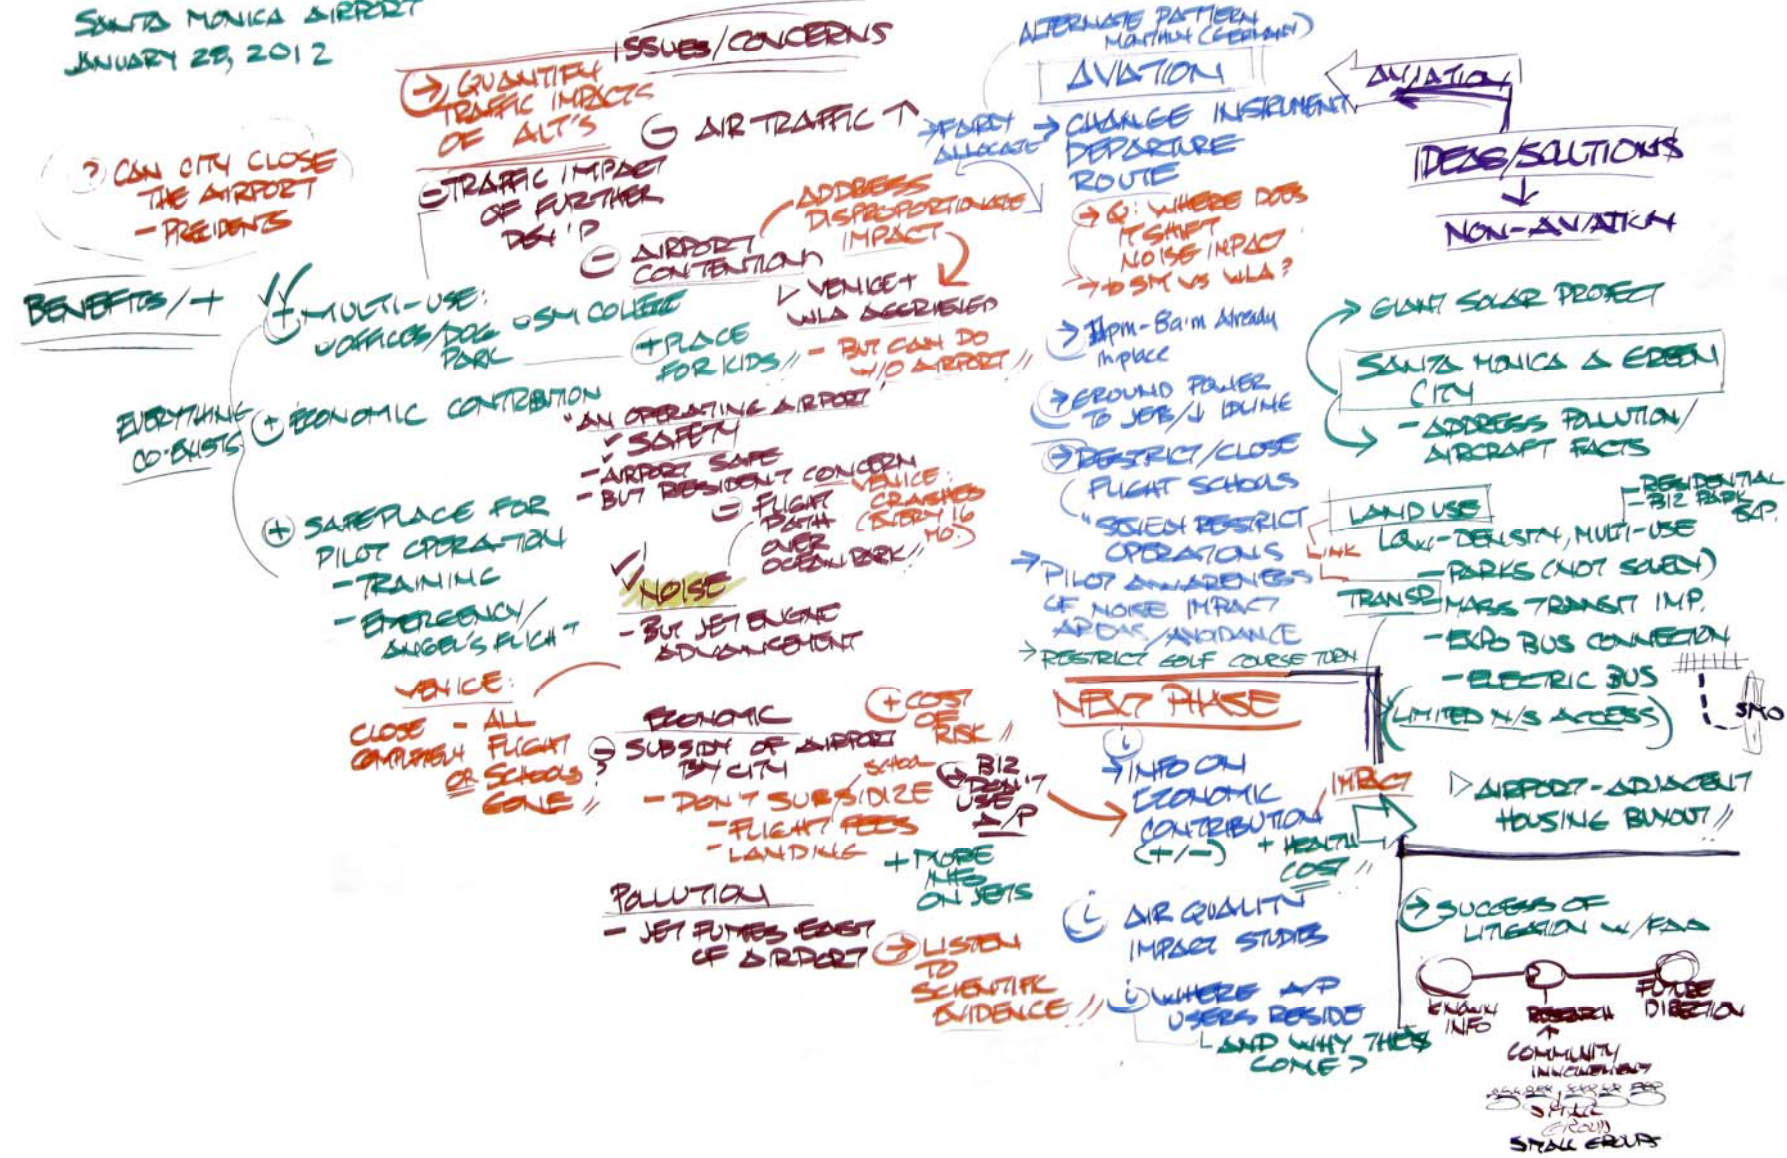 SANTA MONICA AIRPORT
JANUARY 28, 2012
? CAN CITY CLOSE
THE AIRPORT
- PRECIDENTS
BENEFITS/+
+ MULTI-USE:
OFFICES/DOG
PARK
SM COLLEGE
+ PLACE
FOR KIDS //
EVERYTHING
CO-EXISTS
+ ECONOMIC CONTRIBUTION
+ SAFEPLACE FOR
PILOT OPERATION
- TRAINING
- EMERGENCY/
ANGEL'S FLIGHT
ISSUES/CONCERNS
→ QUANTIFY
TRAFFIC IMPACTS
OF ALT'S
- TRAFFIC IMPACT
OF FURTHER
DEV'P
- AIR TRAFFIC ↑
- AIRPORT
CONTENTION
ADDRESS
DISPROPORTIONATE
IMPACT
▷ VENICE +
WLA AGGRIEVED
- BUT CAN DO
W/O AIRPORT //
"AN OPERATING AIRPORT"
✓ SAFETY
- AIRPORT SAFE
- BUT RESIDENT CONCERN
- FLIGHT
PATH
OVER
OCEAN PARK //
VENICE:
CRASHES
(EVERY 16
MO.)
NOISE
- BUT JET ENGINE
ADVANCEMENT
VENICE:
CLOSE
COMPLETELY
OR
- ALL
FLIGHT
SCHOOLS
GONE //
ECONOMIC
- SUBSIDY OF AIRPORT
? BY CITY
- DON'T SUBSIDIZE
SCHOOL
- FLIGHT FEES
- LANDING
+ COST
OF
RISK //
BIZ
DON'T
USE
A/P
+ MORE
INFO
ON JETS
POLLUTION
- JET FUMES EAST
OF AIRPORT
→ LISTEN
TO
SCIENTIFIC
EVIDENCE //
ALTERNATE PATTERN
MONTHLY (GERMANY)
AVIATION
→ FAIRLY
ALLOCATE
→ CHANGE INSTRUMENT
DEPARTURE
ROUTE
→ Q: WHERE DOES
IT SHIFT
NOISE IMPACT
→ SM VS WLA?
→ 11pm-8a'm Already
in place
→ GROUND POWER
TO JEB/↓ IDLINE
→ RESTRICT/CLOSE
FLIGHT SCHOOLS
RESTRICT
OPERATIONS
→ PILOT AWARENESS
OF NOISE IMPACT
AREAS/AVOIDANCE
→ RESTRICT GOLF COURSE TURN
AVIATION
IDEAS/SOLUTIONS
↓
NON-AVIATION
→ GIANT SOLAR PROJECT
SANTA MONICA A GREEN
CITY
- ADDRESS POLLUTION/
AIRCRAFT FACTS
LAND USE
- RESIDENTIAL
- BIZ PARK
EXP.
LOW-DENSITY, MULTI-USE
LINK
- PARKS (NOT SOLELY)
TRANSP
MASS TRANSIT IMP.
- EXPO BUS CONNECTION
- ELECTRIC BUS
(LIMITED N/S ACCESS)
SMO
▷ AIRPORT-ADJACENT
HOUSING BUYOUT //
NEXT PHASE
i
→ INFO ON
ECONOMIC
CONTRIBUTION
(+/-)
IMPACT
+ HEALTH
COST //
i AIR QUALITY
IMPACT STUDIES
i WHERE A/P
USERS RESIDE
AND WHY THEY
COME?
→ SUCCESS OF
LITIGATION W/FAA
KNOWN
INFO
RESEARCH
FUTURE
DIRECTION
COMMUNITY
INVOLVEMENT
SMALL
GROUP
SMALL GROUPS